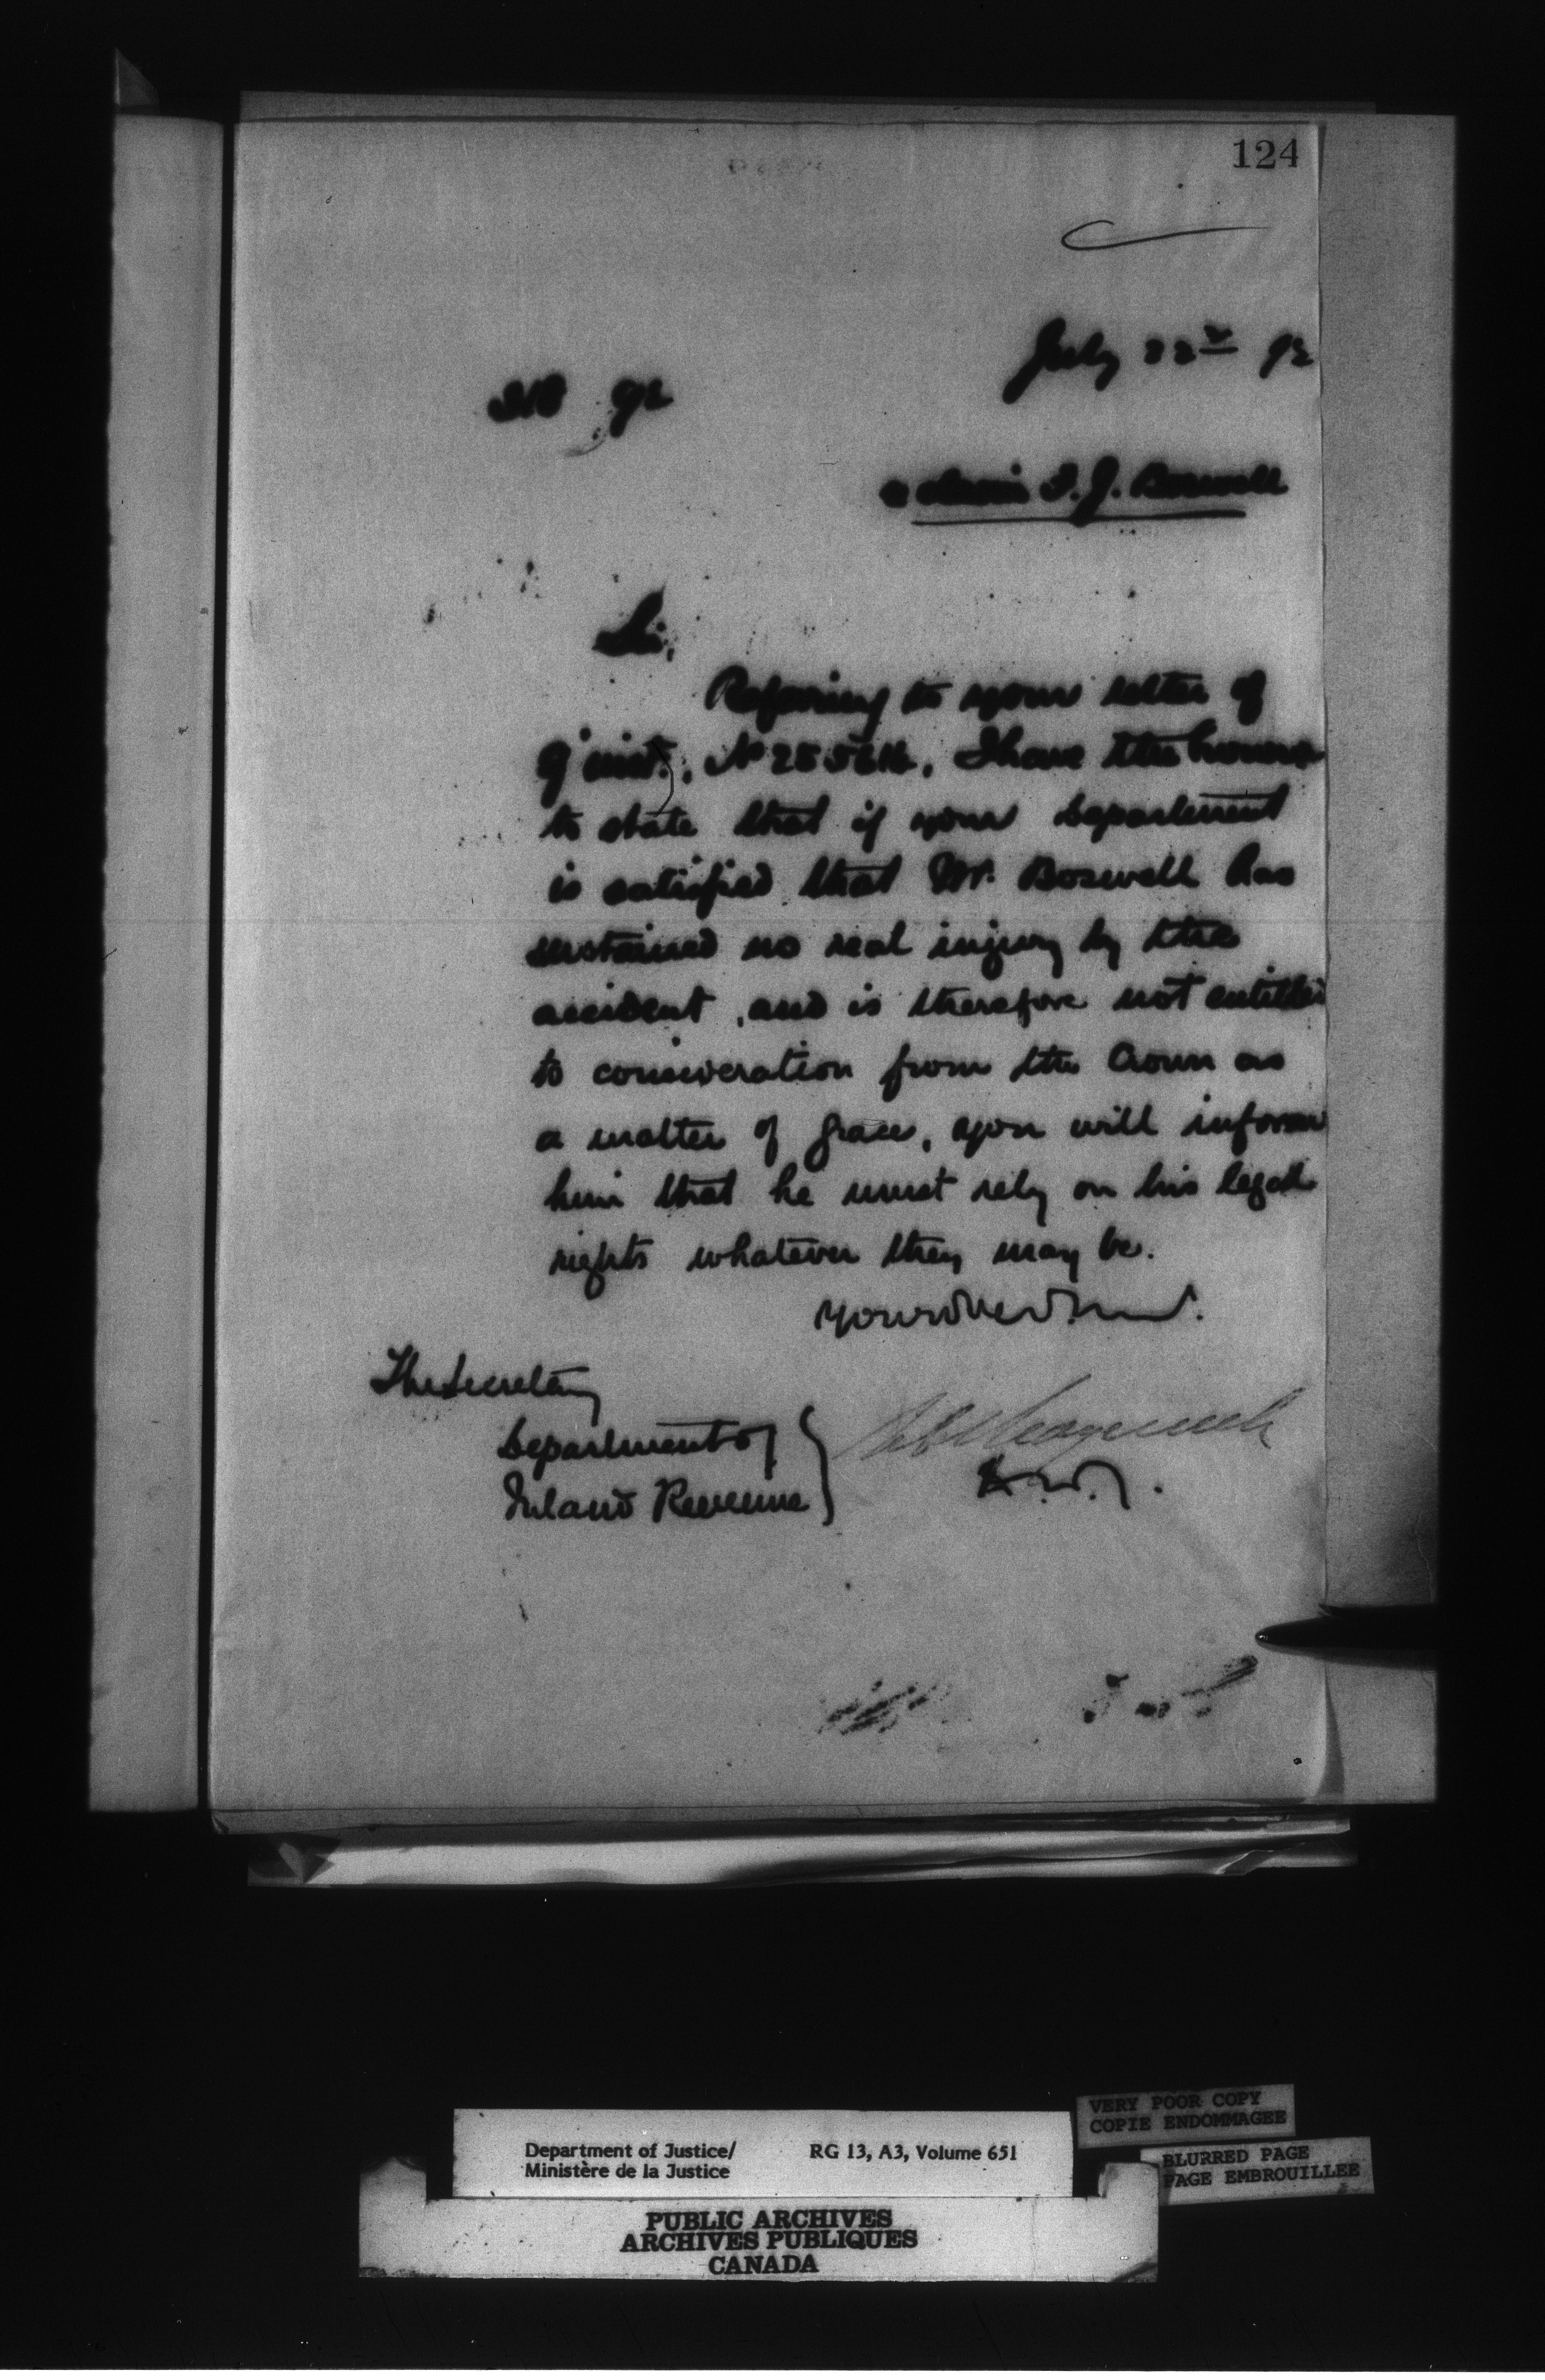 124
July 22nd 92
318 92
re claim I. J. Boswell
Sir,
Referring to your letter of
9' inst., No 25561½, I have the honour
to state that if your Department
is satisfied that Mr. Boswell has
sustained no real injury by the
accident, and is therefore not entitled
to consideration from the Crown as
a matter of grace, you will inform
him that he must rely on his legal
rights whatever they may be.
The Secretary
Department of
Inland Revenue
VERY POOR COPY
COPIE ENDOMMAGEE
Department of Justice/ RG 13, A3, Volume 651
Ministère de la Justice
BLURRED PAGE
PAGE EMBROUILLEE
PUBLIC ARCHIVES
ARCHIVES PUBLIQUES
CANADA